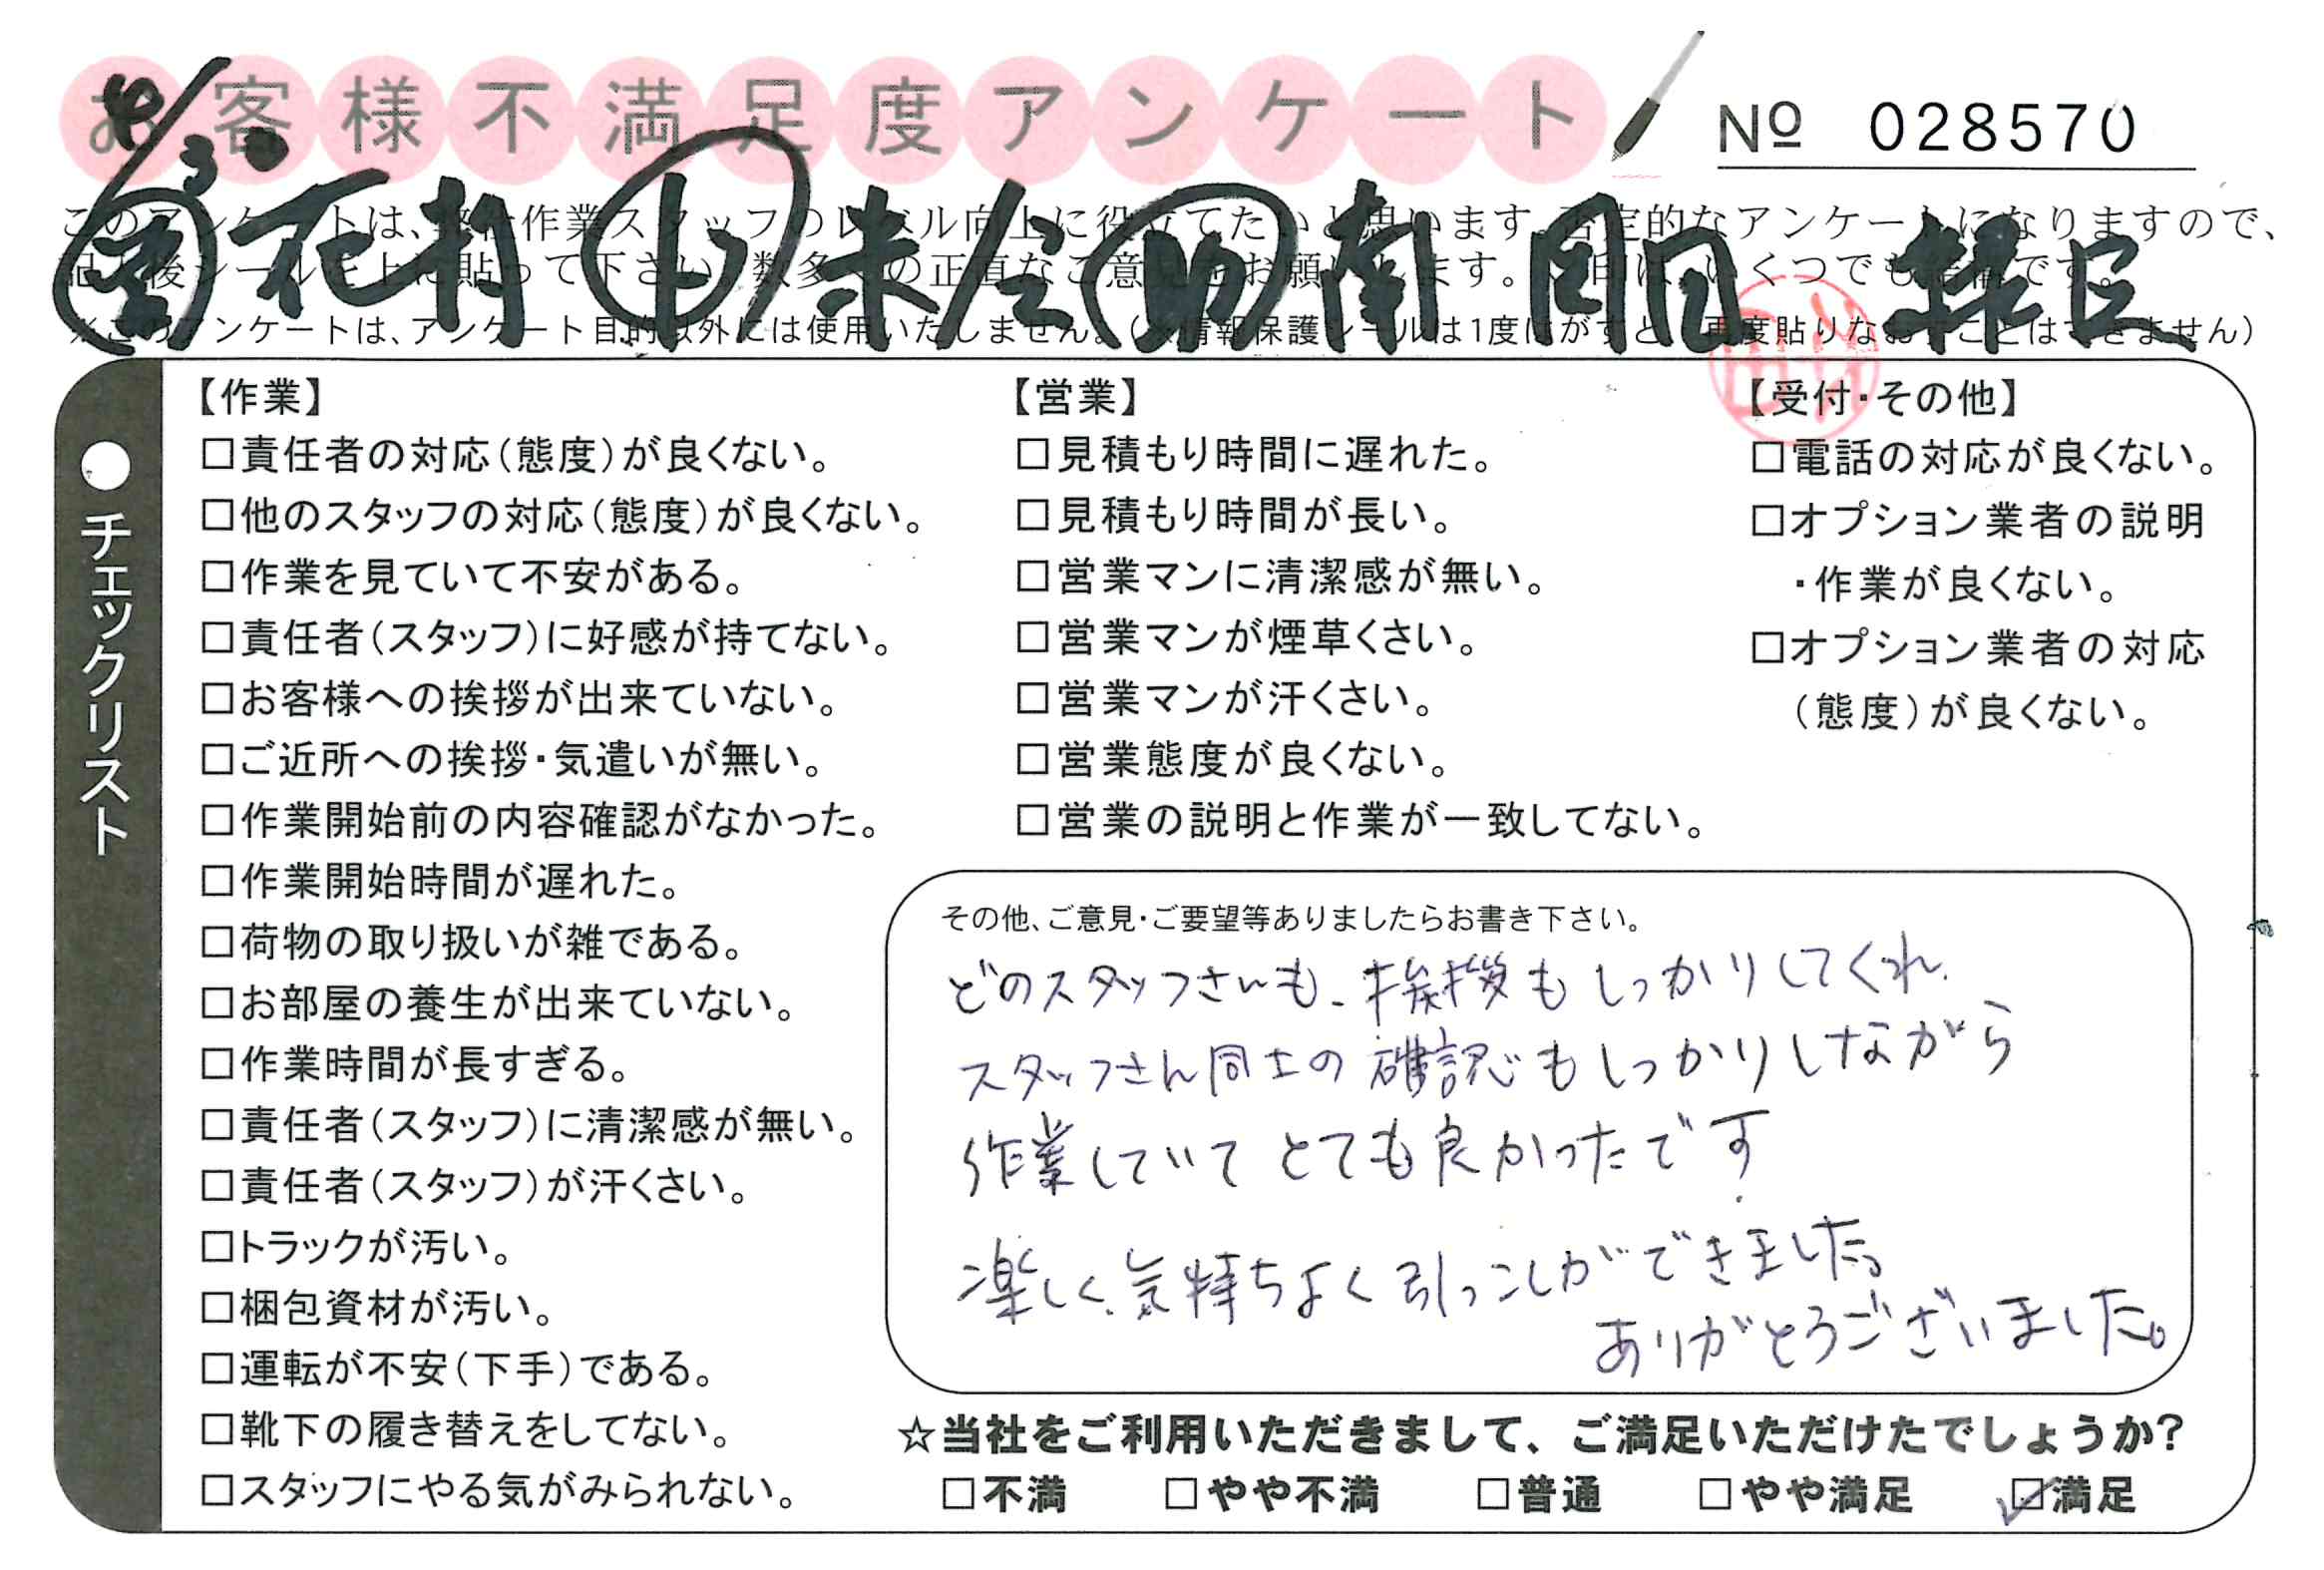 お客様不満足度アンケート
№ 028570
このアンケートは、弊社作業スタッフのレベル向上に役立てたいと思います。否定的なアンケートになりますので、
記入後シールを上に貼って下さい。数多くの正直なご意見をお願いします。 印は、いくつでも結構です。
※このアンケートは、アンケート目的以外には使用いたしません。(※情報保護シールは1度はがすと、再度貼りなおすことはできません)
●チェックリスト
【作業】
□責任者の対応(態度)が良くない。
□他のスタッフの対応(態度)が良くない。
□作業を見ていて不安がある。
□責任者(スタッフ)に好感が持てない。
□お客様への挨拶が出来ていない。
□ご近所への挨拶・気遣いが無い。
□作業開始前の内容確認がなかった。
□作業開始時間が遅れた。
□荷物の取り扱いが雑である。
□お部屋の養生が出来ていない。
□作業時間が長すぎる。
□責任者(スタッフ)に清潔感が無い。
□責任者(スタッフ)が汗くさい。
□トラックが汚い。
□梱包資材が汚い。
□運転が不安(下手)である。
□靴下の履き替えをしてない。
□スタッフにやる気がみられない。
【営業】
□見積もり時間に遅れた。
□見積もり時間が長い。
□営業マンに清潔感が無い。
□営業マンが煙草くさい。
□営業マンが汗くさい。
□営業態度が良くない。
□営業の説明と作業が一致してない。
【受付・その他】
□電話の対応が良くない。
□オプション業者の説明
・作業が良くない。
□オプション業者の対応
(態度)が良くない。
その他、ご意見・ご要望等ありましたらお書き下さい。
どのスタッフさんも、挨拶もしっかりしてくれ、
スタッフさん同士の確認もしっかりしながら
作業していてとても良かったです。
楽しく、気持ちよく引っこしができました。
ありがとうございました。
☆当社をご利用いただきまして、ご満足いただけたでしょうか?
□不満 □やや不満 □普通 □やや満足 ☑満足